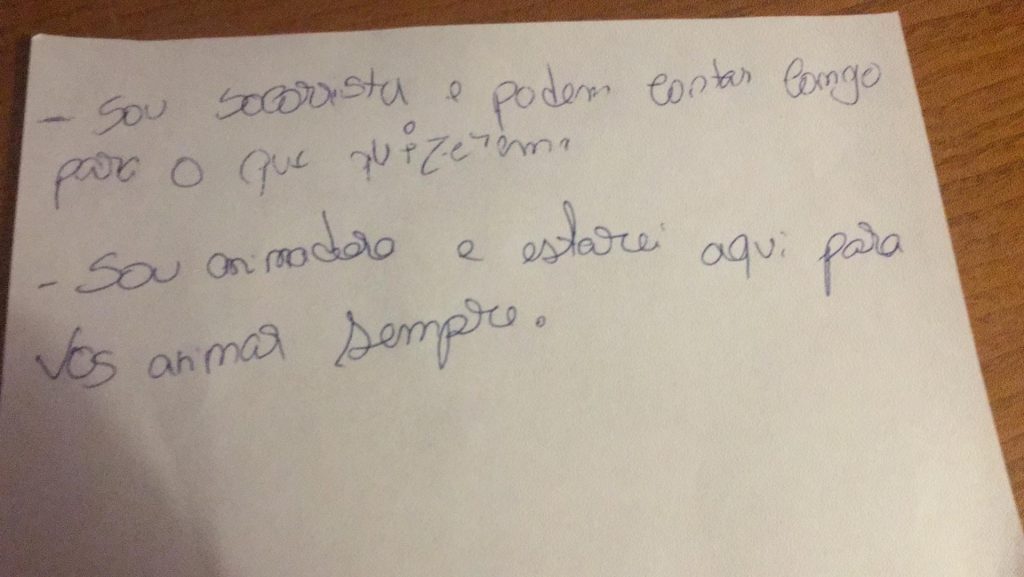 - Sou socorrista e podem contar comgo
para o que quizerem.
- Sou animadora e estarei aqui para
vos animar sempre.